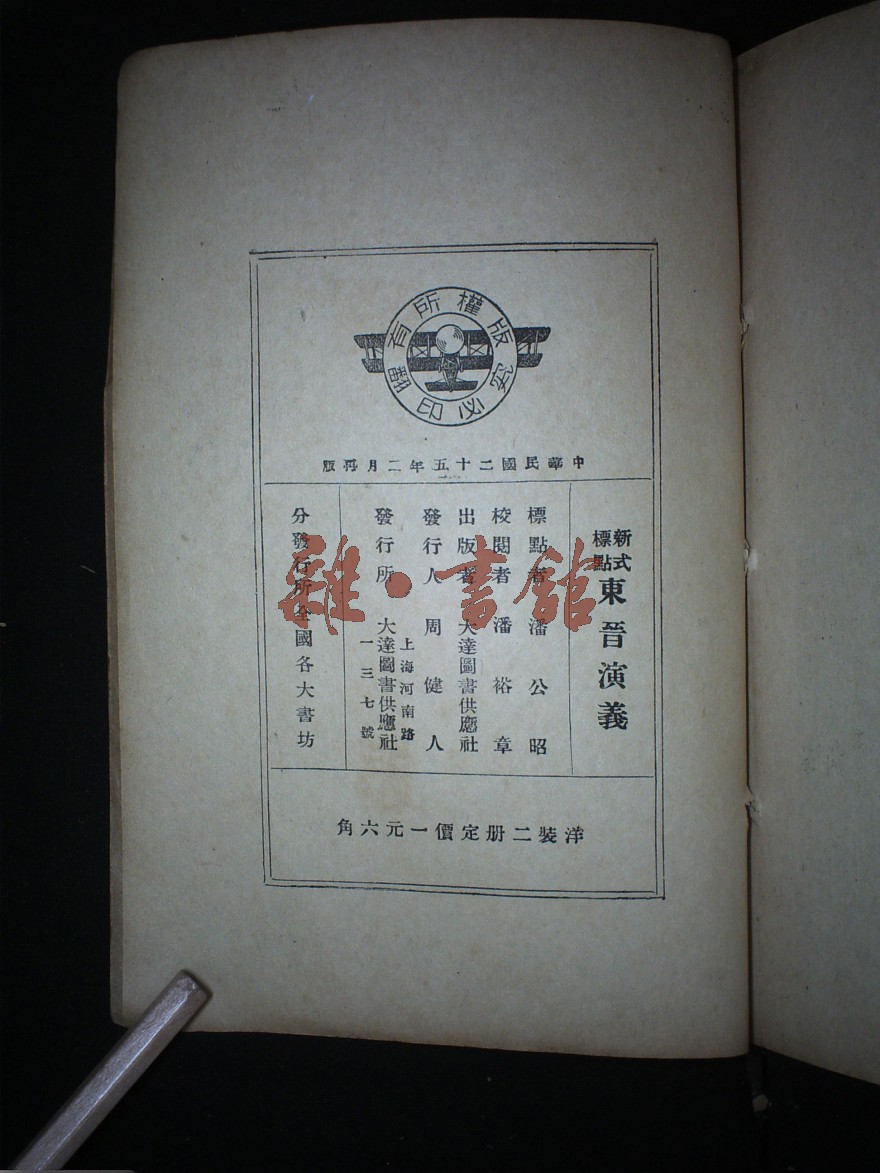 版權所有
翻印必究
中華民國二十五年二月再版
新式標點 東晉演義
標點者 潘公昭
校閱者 潘裕章
出版者 大達圖書供應社
發行人 周健人
上海河南路
發行所 大達圖書供應社
一三七號
分發行所 全國各大書坊
洋裝二册定價一元六角
雜·書館